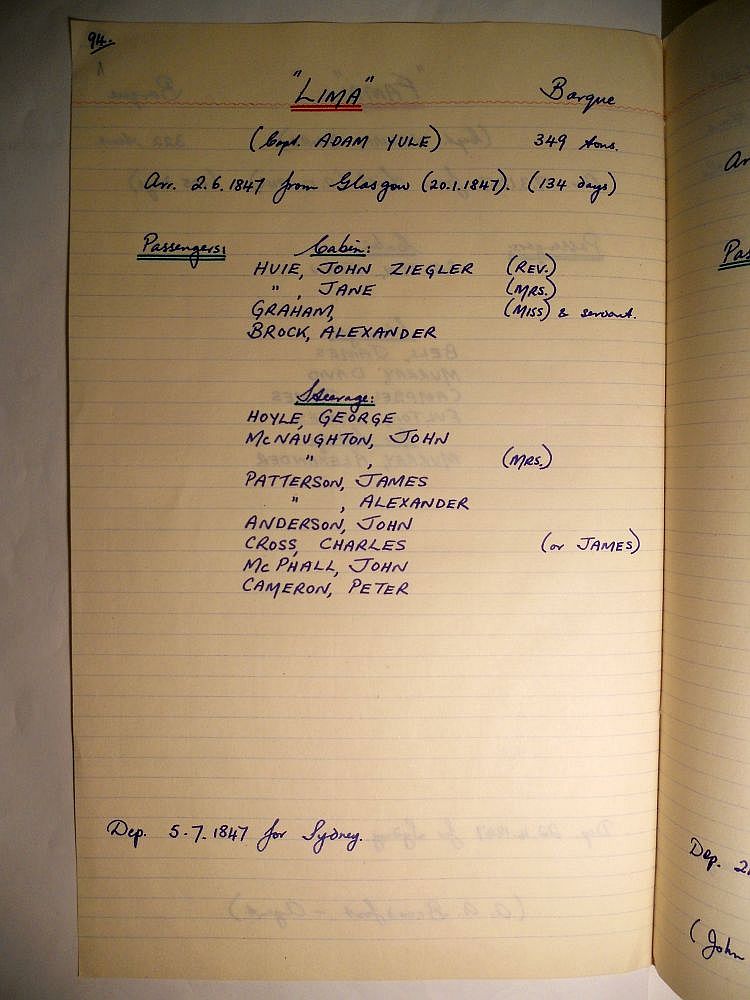 94.
"LIMA" Barque
(Capt. ADAM YULE) 349 tons.
Arr. 2.6.1847 from Glasgow (20.1.1847). (134 days)
Passengers: Cabin:
HUIE, JOHN ZIEGLER (REV.)
" , JANE (MRS.)
GRAHAM, (MISS) & servant.
BROCK, ALEXANDER
Steerage:
HOYLE, GEORGE
McNAUGHTON, JOHN
" , (MRS.)
PATTERSON, JAMES
" , ALEXANDER
ANDERSON, JOHN
CROSS, CHARLES (or JAMES)
McPHALL, JOHN
CAMERON, PETER
Dep. 5.7.1847 for Sydney.
Ar
Pas
Dep. 2
(John